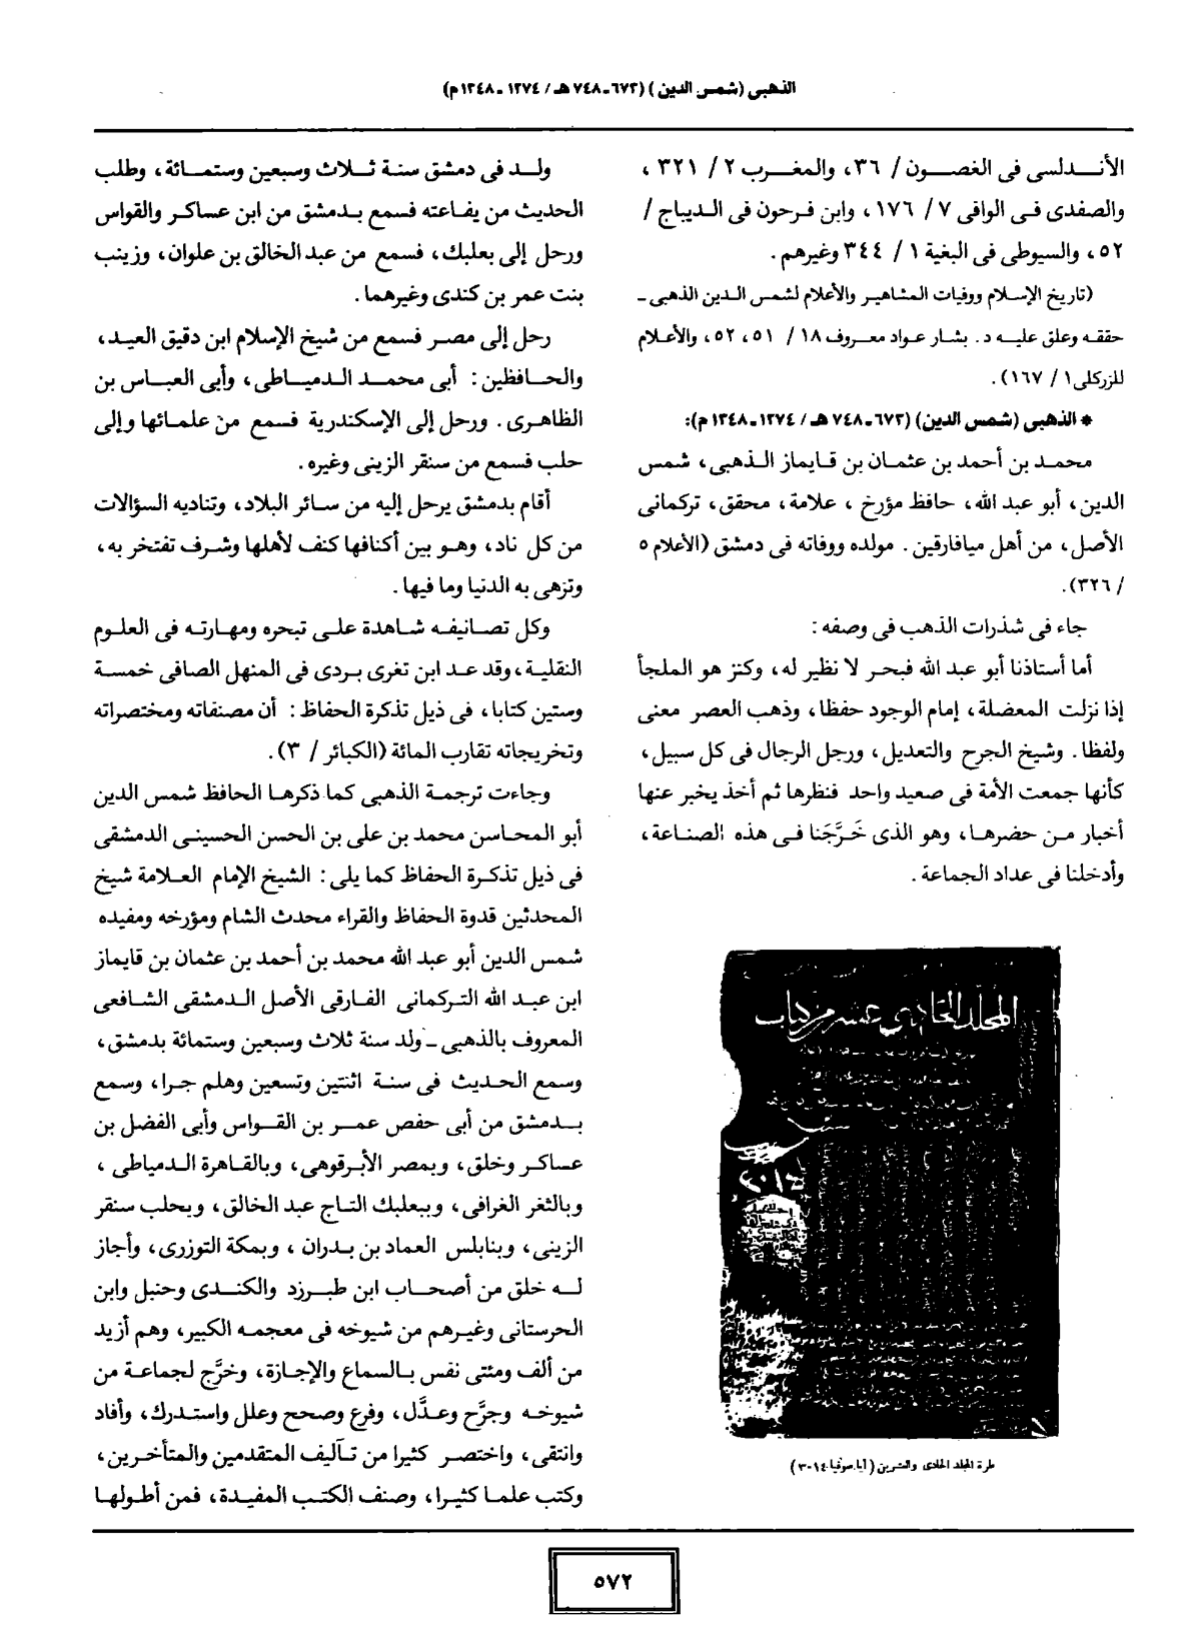 الذهبى (شمس الدين) (٦٧٣ـ٧٤٨ هـ / ١٢٧٤ ـ ١٣٤٨ م)
الأندلسى فى الغصون / ٣٦، والمغرب ٢ / ٣٢١ ،
والصفدى فى الوافى ٧ / ١٧٦ ، وابن فرحون فى الديباج /
٥٢ ، والسيوطى فى البغية ١ / ٣٤٤ وغيرهم .
(تاريخ الإسلام ووفيات المشاهير والأعلام لشمس الدين الذهبى ـ
حققه وعلق عليه د . بشار عواد معروف ١٨ / ٥١، ٥٢، والأعلام
للزركلى ١ / ١٦٧) .
* الذهبى (شمس الدين) (٦٧٣ـ٧٤٨ هـ / ١٢٧٤ـ١٣٤٨ م):
محمد بن أحمد بن عثمان بن قايماز الذهبى، شمس
الدين، أبو عبد الله، حافظ مؤرخ ، علامة، محقق، تركمانى
الأصل، من أهل ميافارقين . مولده ووفاته فى دمشق (الأعلام ٥
/ ٣٢٦).
جاء فى شذرات الذهب فى وصفه :
أما أستاذنا أبو عبد الله فبحر لا نظير له، وكنز هو الملجأ
إذا نزلت المعضلة، إمام الوجود حفظا، وذهب العصر معنى
ولفظا . وشيخ الجرح والتعديل، ورجل الرجال فى كل سبيل،
كأنها جمعت الأمة فى صعيد واحد فنظرها ثم أخذ يخبر عنها
أخبار من حضرها، وهو الذى خَرَّجَنا فى هذه الصناعة،
وأدخلنا فى عداد الجماعة .
المجلد الحادي عشر من كتاب
٣٠١٤
طرة المجلد الحادى والعشرين (أيا صوفيا ٣٠١٤)
ولد فى دمشق سنة ثلاث وسبعين وستمائة، وطلب
الحديث من يفاعته فسمع بدمشق من ابن عساكر والقواس
ورحل إلى بعلبك، فسمع من عبد الخالق بن علوان، وزينب
بنت عمر بن كندى وغيرهما .
رحل إلى مصر فسمع من شيخ الإسلام ابن دقيق العيد،
والحافظين : أبى محمد الدمياطى، وأبى العباس بن
الظاهرى . ورحل إلى الإسكندرية فسمع من علمائها وإلى
حلب فسمع من سنقر الزينى وغيره .
أقام بدمشق يرحل إليه من سائر البلاد، وتناديه السؤالات
من كل ناد، وهو بين أكنافها كنف لأهلها وشرف تفتخر به،
وتزهى به الدنيا وما فيها .
وكل تصانيفه شاهدة على تبحره ومهارته فى العلوم
النقلية، وقد عد ابن تغرى بردى فى المنهل الصافى خمسة
وستين كتابا، فى ذيل تذكرة الحفاظ : أن مصنفاته ومختصراته
وتخريجاته تقارب المائة (الكبائر / ٣) .
وجاءت ترجمة الذهبى كما ذكرها الحافظ شمس الدين
أبو المحاسن محمد بن على بن الحسن الحسينى الدمشقى
فى ذيل تذكرة الحفاظ كما يلى : الشيخ الإمام العلامة شيخ
المحدثين قدوة الحفاظ والقراء محدث الشام ومؤرخه ومفيده
شمس الدين أبو عبد الله محمد بن أحمد بن عثمان بن قايماز
ابن عبد الله التركمانى الفارقى الأصل الدمشقى الشافعى
المعروف بالذهبى ـ ولد سنة ثلاث وسبعين وستمائة بدمشق،
وسمع الحديث فى سنة اثنتين وتسعين وهلم جرا، وسمع
بدمشق من أبى حفص عمر بن القواس وأبى الفضل بن
عساكر وخلق، وبمصر الأبرقوهى، وبالقاهرة الدمياطى ،
وبالثغر الغرافى، وببعلبك التاج عبد الخالق، وبحلب سنقر
الزينى، وبنابلس العماد بن بدران ، وبمكة التوزرى، وأجاز
له خلق من أصحاب ابن طبرزد والكندى وحنبل وابن
الحرستانى وغيرهم من شيوخه فى معجمه الكبير، وهم أزيد
من ألف ومئتى نفس بالسماع والإجازة، وخرَّج لجماعة من
شيوخه وجرَّح وعدَّل، وفرع وصحح وعلل واستدرك، وأفاد
وانتقى، واختصر كثيرا من تآليف المتقدمين والمتأخرين،
وكتب علما كثيرا، وصنف الكتب المفيدة، فمن أطولها
٥٧٢